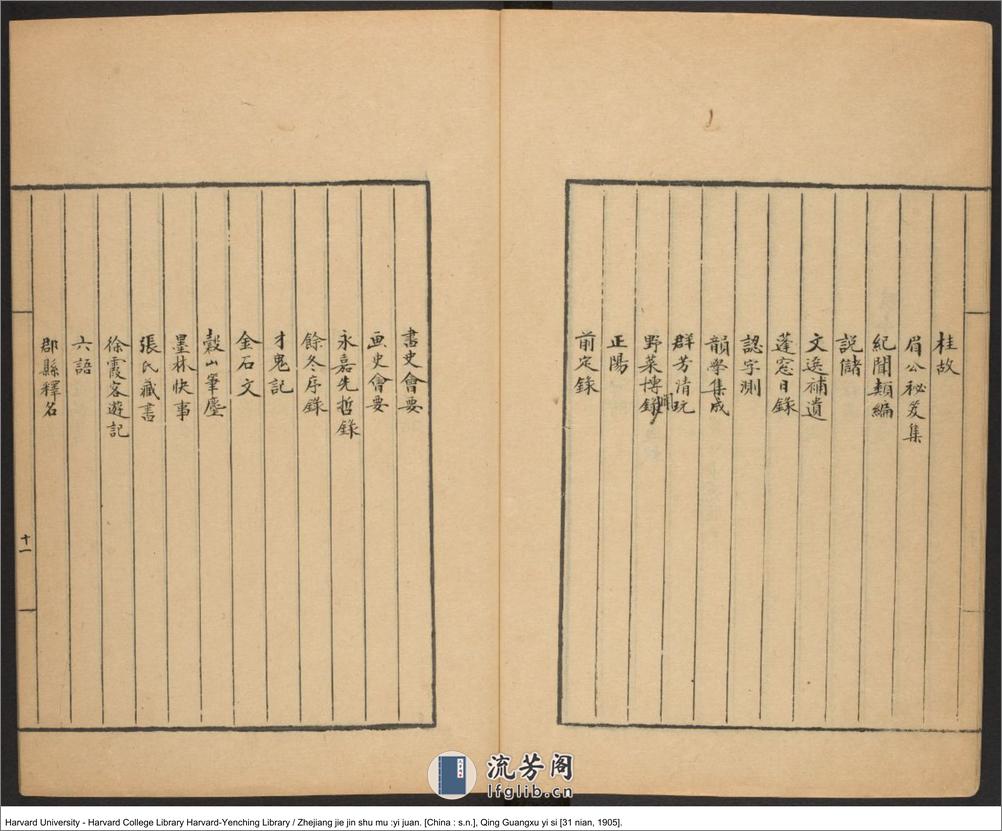 桂故
眉公秘笈集
紀聞類編
説儲
文選補遺
蓬窓日錄
認字測
韻學集成
群芳清玩
野菜博錄
正陽
前定錄
書史會要
画史會要
永嘉先哲錄
餘冬序錄
才鬼記
金石文
穀山筆麈
墨林快事
張氏藏書
徐霞客遊記
六語
郡縣釋名
十一
流芳阁
lfglib.cn
Harvard University - Harvard College Library Harvard-Yenching Library / Zhejiang jie jin shu mu :yi juan. [China : s.n.], Qing Guangxu yi si [31 nian, 1905].